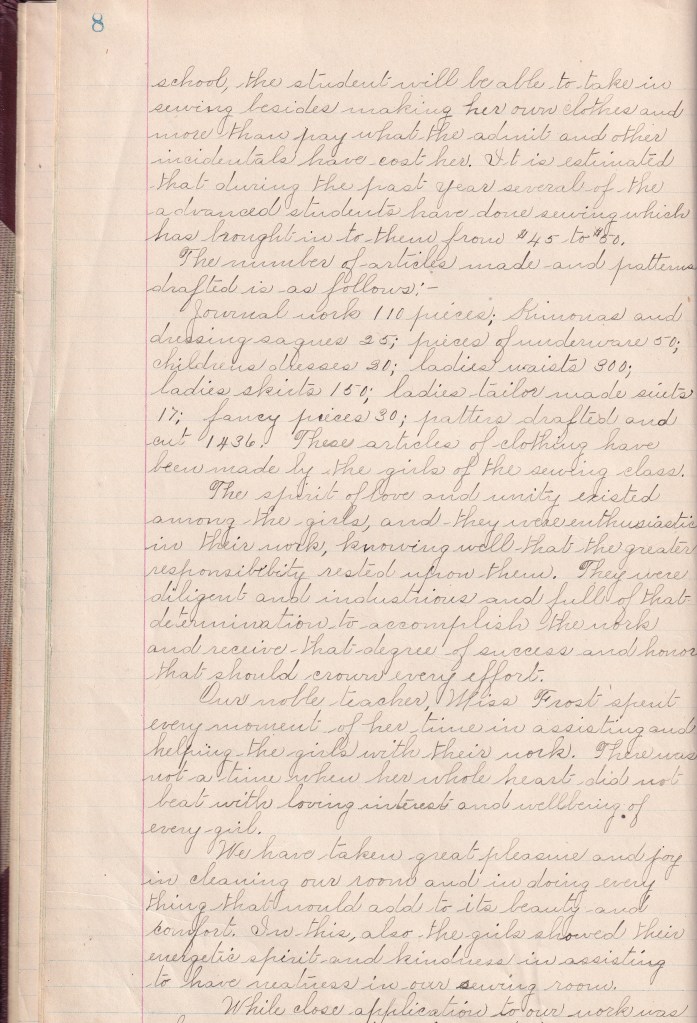 8
school, the student will be able to take in
sewing besides making her own clothes and
more than pay what the admit and other
incidentals have cost her. It is estimated
that during the past year several of the
advanced students have done sewing which
has brought in to them from $45 to $50.
The number of articles made and patterns
drafted is as follows:-
Journal work 110 pieces; Kimonas and
dressing saques 25; pieces of underware 50;
childrens dresses 20; ladies waists 300;
ladies skirts 150; ladies tailor made suits
17; fancy pieces 30; patters drafted and
cut 1436. These articles of clothing have
been made by the girls of the sewing class.
The spirit of love and unity existed
among the girls, and they were enthusiastic
in their work, knowing well that the greater
responsibility rested upon them. They were
diligent and industrious and full of that
determination to accomplish the work
and receive that degree of success and honor
that should crown every effort.
Our noble teacher, Miss Frost spent
every moment of her time in assisting and
helping the girls with their work. There was
not a time when her whole heart did not
beat with loving interest and wellbeing of
every girl.
We have taken great pleasure and joy
in cleaning our room and in doing every
thing that would add to its beauty and
comfort. In this, also the girls showed their
energetic spirit and kindness in assisting
to have neatness in our sewing room.
While close application to our work was